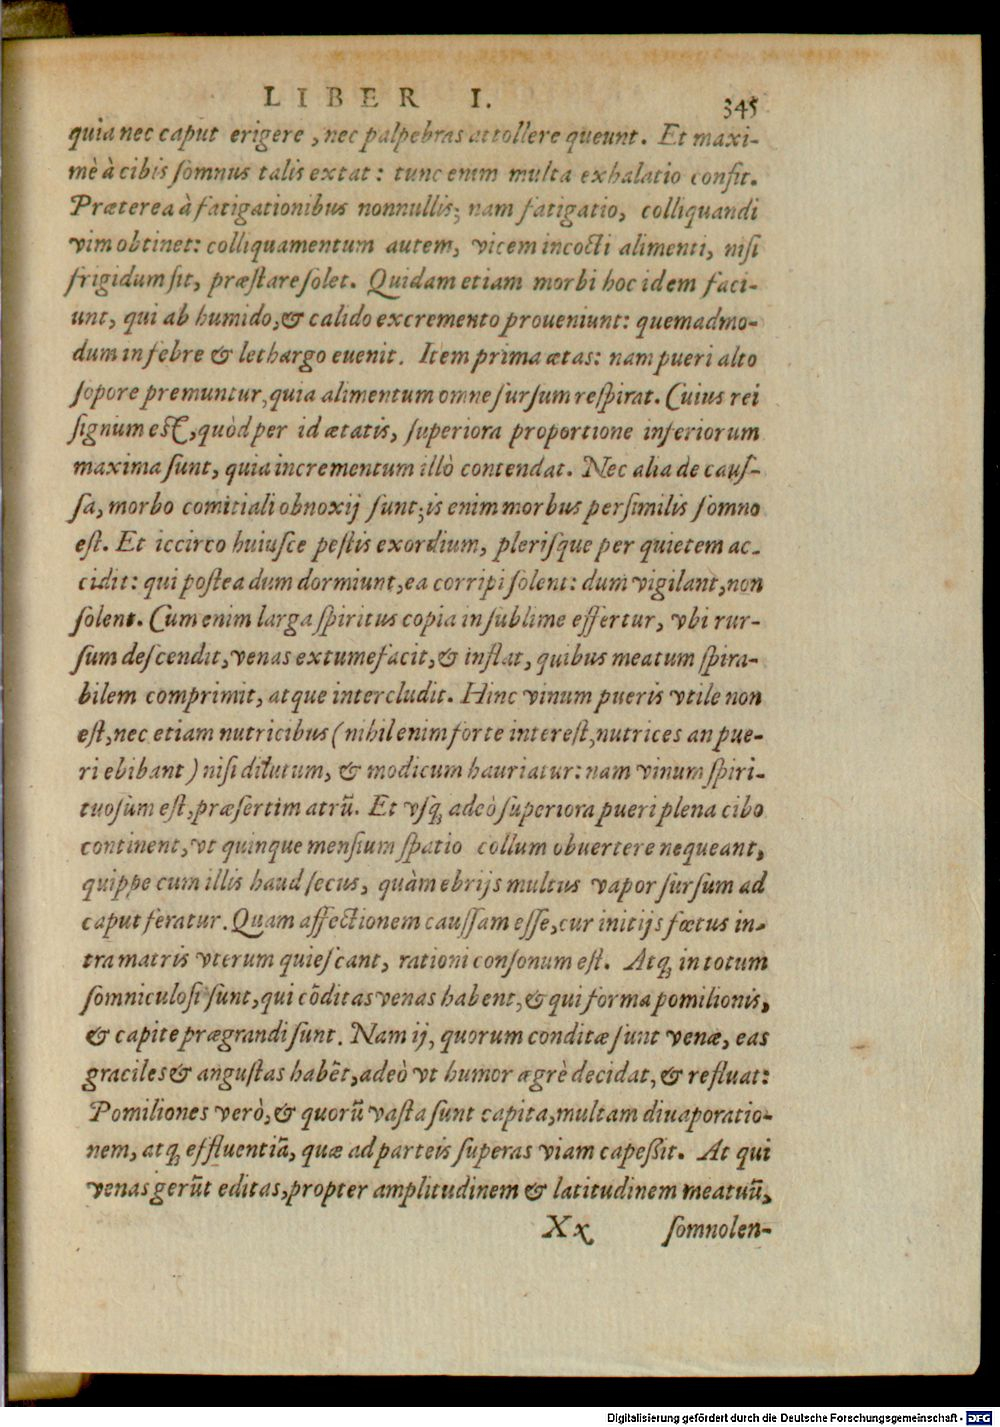 LIBER I. 345
quia nec caput erigere, nec palpebras attollere queunt. Et maxi-
mè à cibis ſomnus talis extat: tunc enim multa exhalatio conſit.
Præterea à fatigationibus nonnullis; nam fatigatio, colliquandi
vim obtinet: colliquamentum autem, vicem incocti alimenti, niſi
frigidum ſit, præſtare ſolet. Quidam etiam morbi hoc idem faci-
unt, qui ab humido, & calido excremento proueniunt: quemadmo-
dum in febre & lethargo euenit. Item prima ætas: nam pueri alto
ſopore premuntur, quia alimentum omne ſurſum reſpirat. Cuius rei
ſignum eſt, quòd per id ætatis, ſuperiora proportione inferiorum
maxima ſunt, quia incrementum illò contendat. Nec alia de cauſ-
ſa, morbo comitiali obnoxij ſunt; is enim morbus perſimilis ſomno
eſt. Et iccirco huiuſce peſtis exordium, pleriſque per quietem ac-
cidit: qui poſtea dum dormiunt, ea corripi ſolent: dum vigilant, non
ſolent. Cum enim larga ſpiritus copia in ſublime effertur, vbi rur-
ſum deſcendit, venas extumefacit, & inflat, quibus meatum ſpira-
bilem comprimit, atque intercludit. Hinc vinum pueris vtile non
eſt, nec etiam nutricibus (nihil enim forte intereſt, nutrices an pue-
ri ebibant) niſi dilutum, & modicum hauriatur: nam vinum ſpiri-
tuoſum eſt, præſertim atrũ. Et vſq; adeò ſuperiora pueri plena cibo
continent, vt quinque menſium ſpatio collum obuertere nequeant,
quippe cum illis haud ſecus, quàm ebrijs multus vapor ſurſum ad
caput feratur. Quam affectionem cauſſam eſſe, cur initijs fœtus in-
tra matris vterum quieſcant, rationi conſonum eſt. Atq; in totum
ſomniculoſi ſunt, qui cõditas venas habent, & qui forma pomilionis,
& capite prægrandi ſunt. Nam ij, quorum conditæ ſunt venæ, eas
graciles & anguſtas habẽt, adeò vt humor ægrè decidat, & refluat:
Pomiliones verò, & quorũ vaſta ſunt capita, multam diuaporatio-
nem, atq; effluentiã, quæ ad parteis ſuperas viam capeſſit. At qui
venas gerũt editas, propter amplitudinem & latitudinem meatuũ,
Xx ſomnolen-
Digitalisierung gefördert durch die Deutsche Forschungsgemeinschaft - DFG